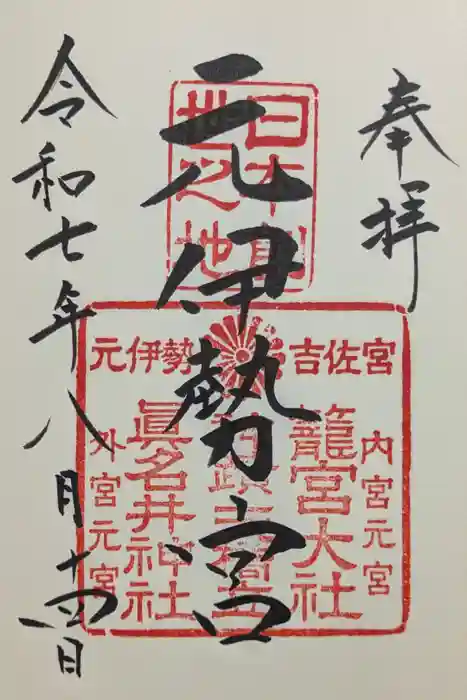 奉拝
元伊勢宮
令和七年八月十四日
日本創
世之地
元伊勢
吉佐宮
内宮元宮
籠宮大社
眞名井神社
外宮元宮